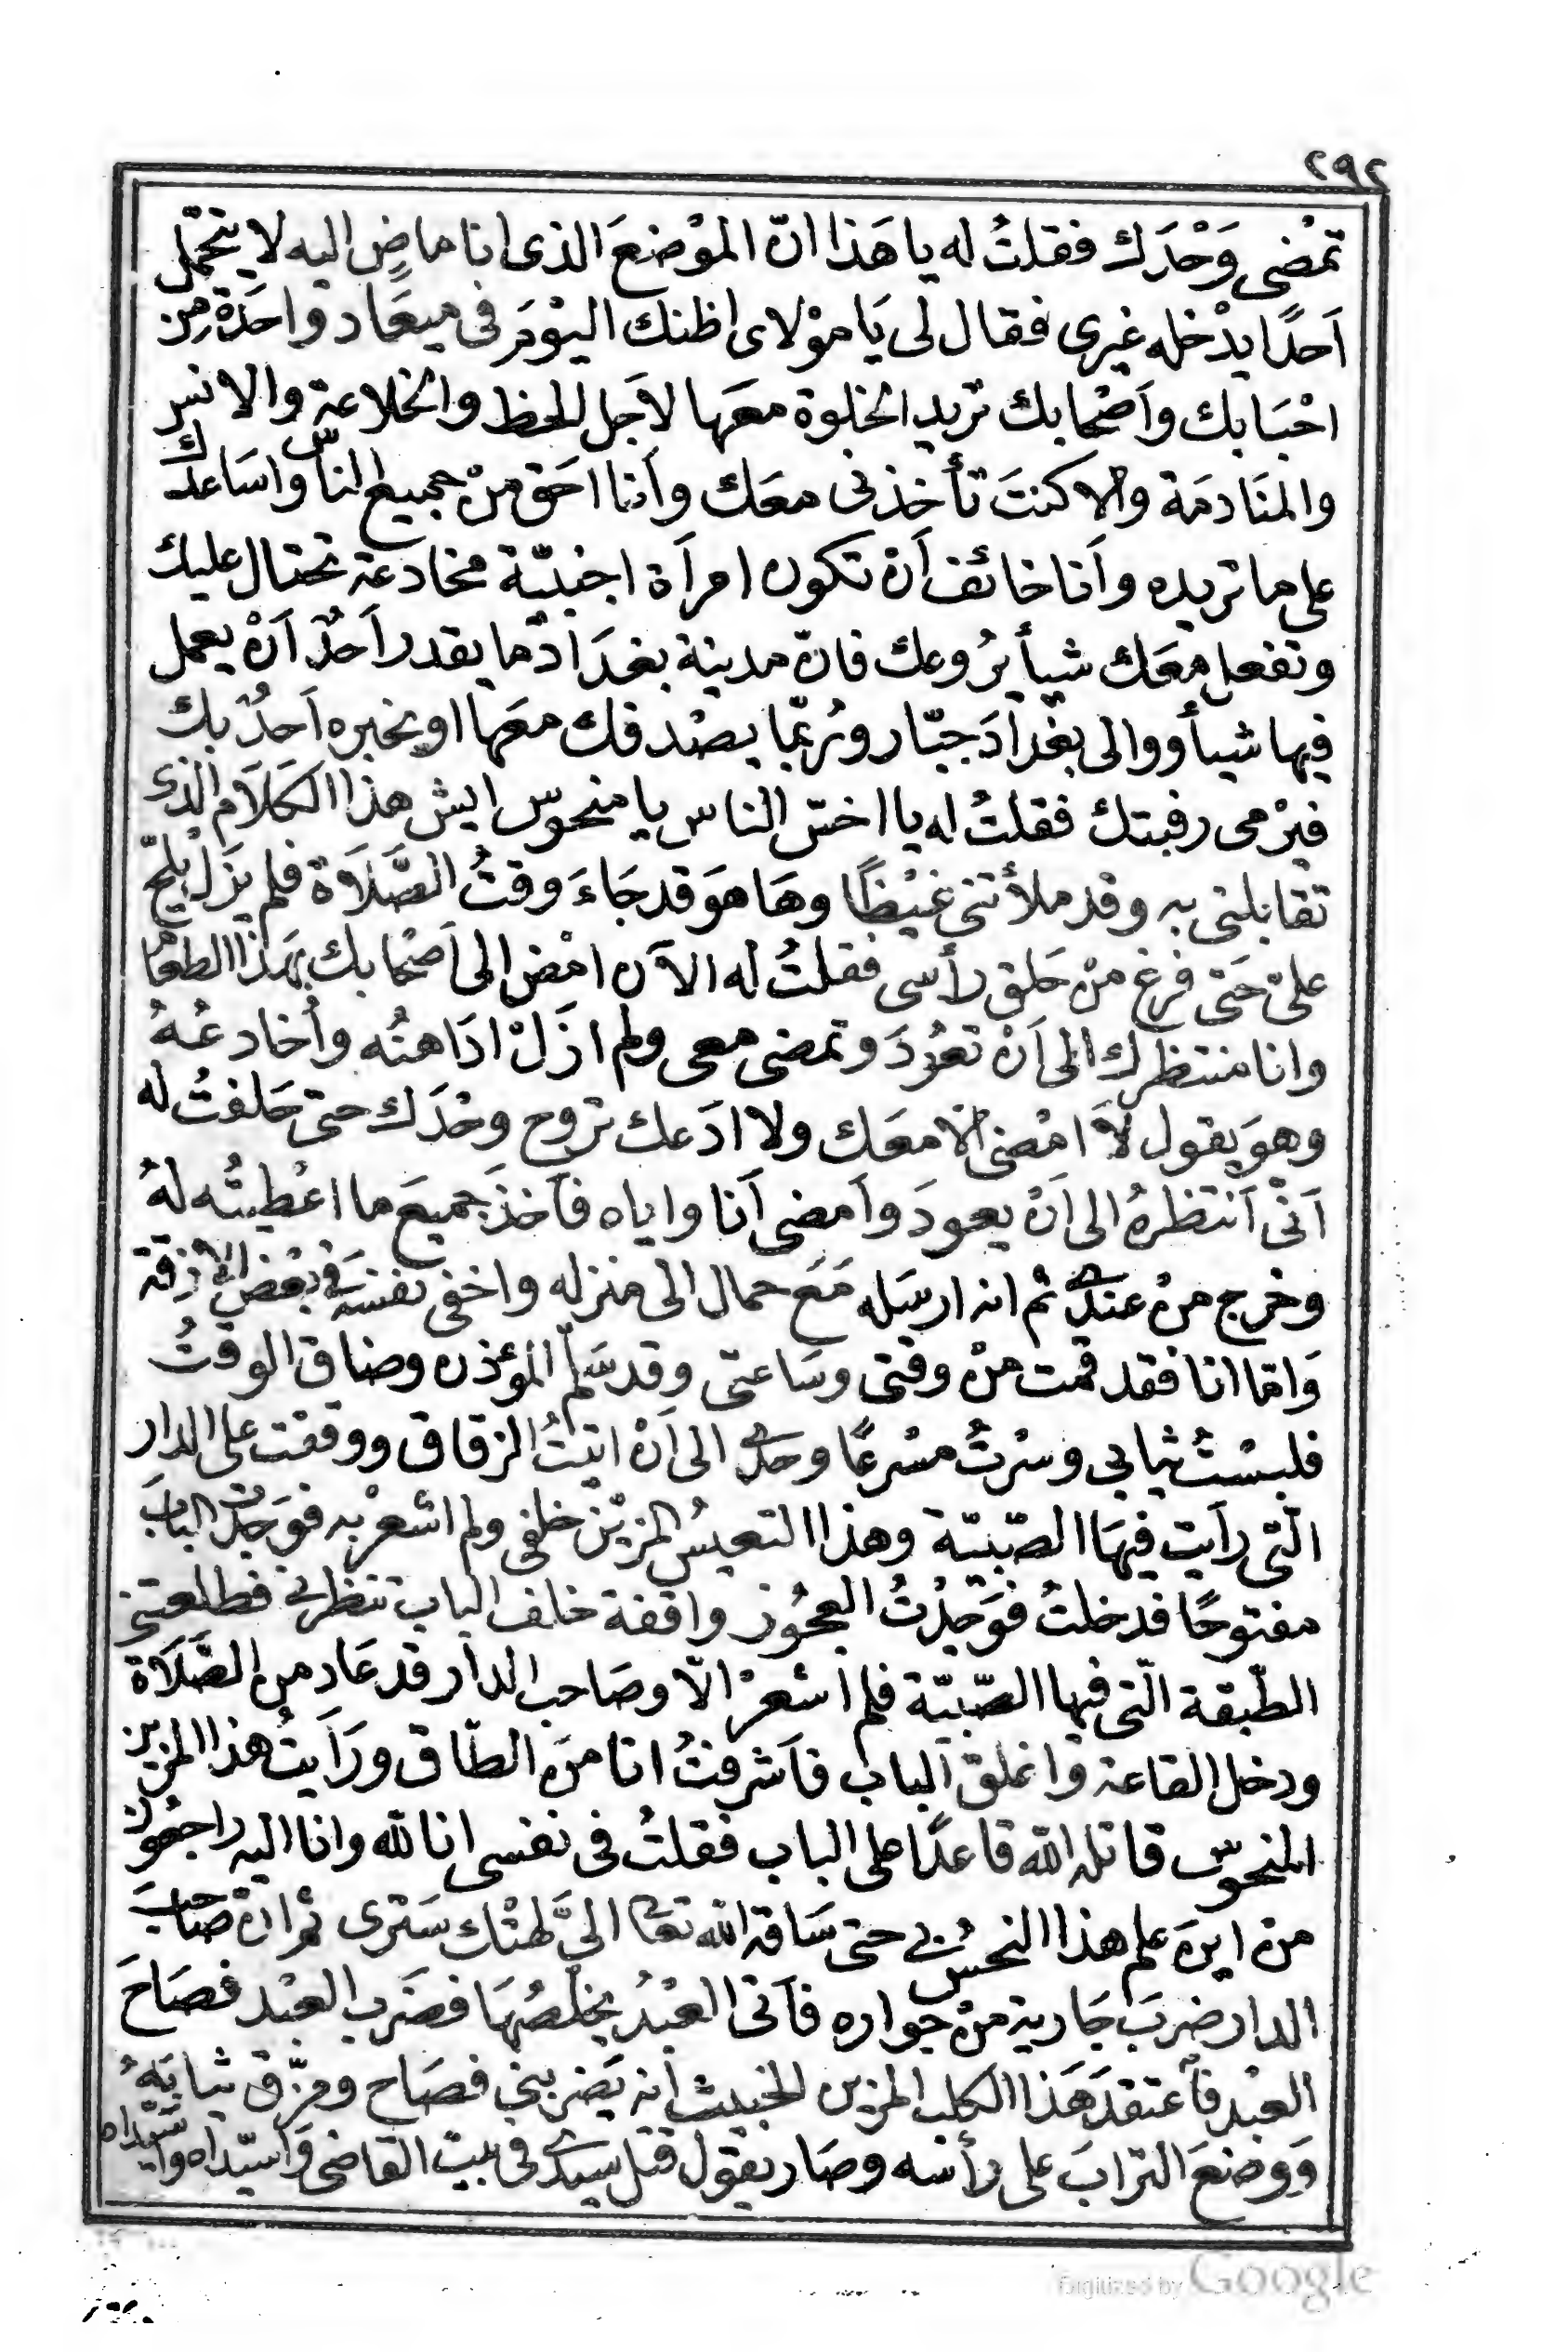 ٢٩٢
تمْضى وَحْدَك فقلتُ له يا هَذا انّ الموْضعَ الذى انا ماضٍ اليه لا يتحمّل
اَحدًا يدْخله غيرى فقال لى يَا موْلاى اظنك اليوْمَ فى ميعَاد واحَدَة مِن
احْبَابك واَصْحابك تريد الخلوة معَها لاَجل الحظ والخلاعة والانس
والمنَادمَة والا كنتَ تأخذنى معَك واَنا احَق منْ جميع الناسّ واسَاعدك
على ما تريده واَنا خائف اَنْ تكون امراَة اجنبيّة مخادعة تحتال عليك
وتفعل معَك شيأ يرُوعك فانّ مدينة بغدَاد ما يقدر اَحدٌ اَنْ يعمل
فيها شيأ ووالى بغْدادَ جبّار ورُبّما يصْدفك معَها او يخبره اَحدٌ بك
فيرْمى رقبتك فقلتُ له يا اخسّ الناس يا منحوس ايش هذا الكلَام الذى
تقابلنى به وقد ملأتنى غيْظًا وهَا هوَ قد جَاءَ وقتُ الصَّلَاة فلم يزَلْ يلحّ
علىّ حَتى فرغ منْ حَلق رأسى فقلتُ له الآن امْض الى اَصْحابك بهَذا الطعَام
وانا منتظرك الى اَنْ تعُودَ وتمضى معى ولم ازَلْ ادَاهنُه واُخادعُهُ
وهوَ يقول لاَ امْضى الا معَك ولا ادَعك تروح وحْدَك حتى حَلفتُ له
اَنّى اَنتظرهُ الى اَنْ يعودَ واَمضى اَنا واياه فاَخذَ جميعَ ما اعْطيتُه لهُ
وخرج منْ عندى ثم انه ارسَله مَعَ حمال الى منزله واخفى نفسَه فى بعْض الازقة
وَامّا انا فقد قمت منْ وقتى وسَاعتى وقد سَلّم المؤذن وضاق الوقتُ
فلبسْتُ ثيابى وسْرتُ مسْرعًا وحدى الى اَنْ اتيْتُ الزقاق ووقفْت على الدار
الّتى راَيت فيهَا الصّبيّة وهذا التعيسُ المزيّن خلفى ولم اشعرْ به فوَجدْت البابَ
مفتوحًا فدخلتُ فوَجدْتُ العجُوز واقفة خلف الباب تنتظرنى فطلعتنى
الطّبقة الّتى فيها الصّبيّة فلم اشعرْ الّا وصَاحب الدار قد عَاد من الصَّلَاة
ودخل القاعة واغلق الباب فاَشرفتُ انا منَ الطّاق ورَاَيتُ هذا المزين
المنحوس قاتله الله قاعدًا على الباب فقلتُ فى نفسى انا لله وانا اليه راجعُون
منْ اينَ علم هذا النحسُ بى حتى سَاقه الله تعالى الىَّ لهتْك سَترى ثم انّ صَاحبَ
الدار ضربَ جَارية منْ جواره فاَتى العبْدُ يخلّصُهَا فضَرب العبْد فصَاحَ
العبْد فاَعتقدَ هَذا الكلب المزين الخبيث انه يَضربنى فصَاح ومزّق ثيابَهُ
وَوضعَ الترابَ على رأسه وصَار يقول قتل سيدى فى بيت القاضى وَاسيّداه واسَيّداه
Digitized by Google